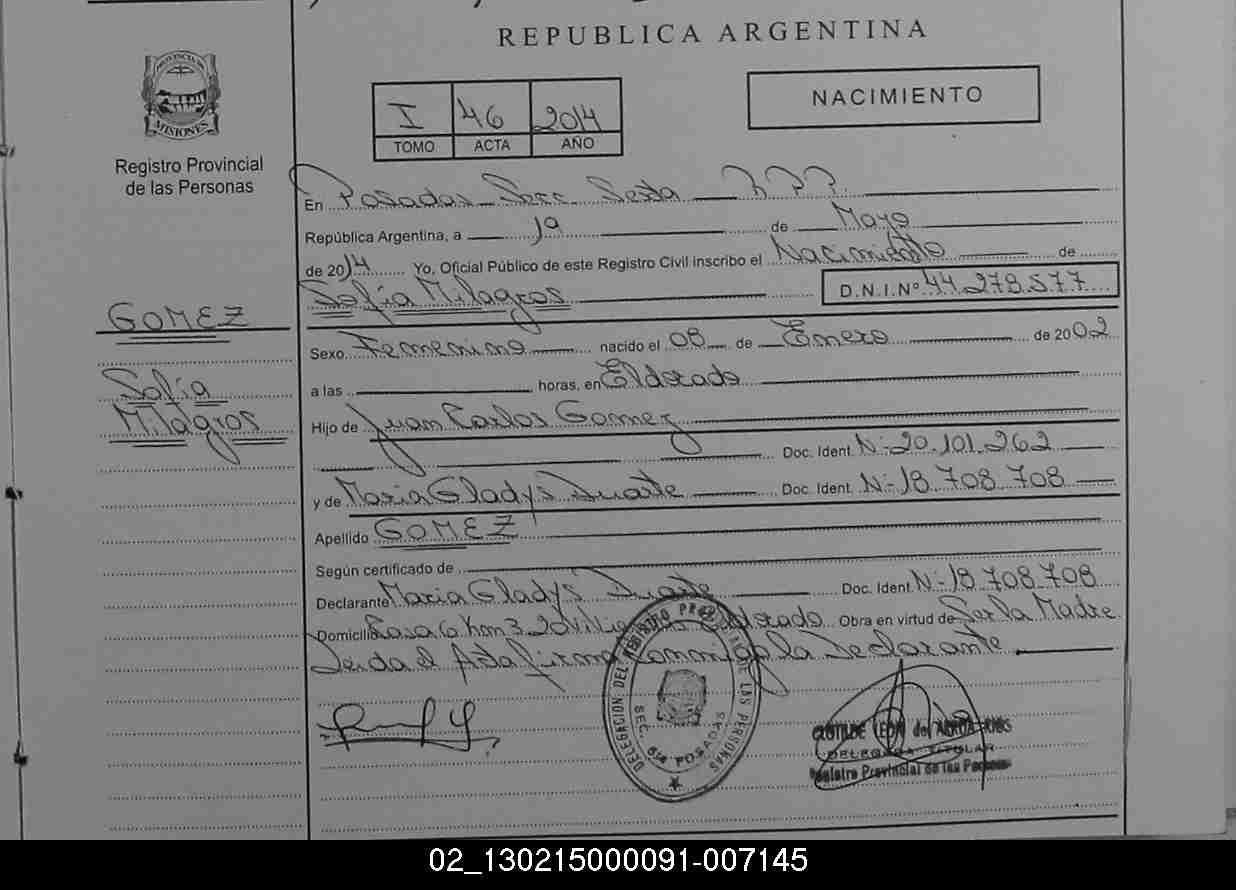 REPUBLICA ARGENTINA
PROVINCIA DE
MISIONES
Registro Provincial
de las Personas
I 46 2014
TOMO ACTA AÑO
NACIMIENTO
En Posadas Secc Sexta
República Argentina, a 19 de Mayo
de 2014 Yo, Oficial Público de este Registro Civil inscribo el Nacimiento de
Sofía Milagros D.N.I.Nº 44.278.577
GOMEZ
Sofía
Milagros
Sexo Femenino nacido el 08 de Enero de 2002
a las horas, en Eldorado
Hijo de Juan Carlos Gomez
Doc. Ident. Nº 20.101.262
y de Maria Gladys Duarte Doc. Ident. Nº 18.708.708
Apellido GOMEZ
Según certificado de
Declarante Maria Gladys Duarte Doc. Ident. Nº 18.708.708
Domicilio Casa 6 Km 3 20 Viviendas Eldorado Obra en virtud de Ser la Madre
Leida el Acta firma conmigo la Declarante
DELEGACION DEL REGISTRO PROV. DE LAS PERSONAS
SEC. 6ta POSADAS
CLOTILDE LEON de
DELEGADA TITULAR
Registro Provincial de las Personas
02_130215000091-007145